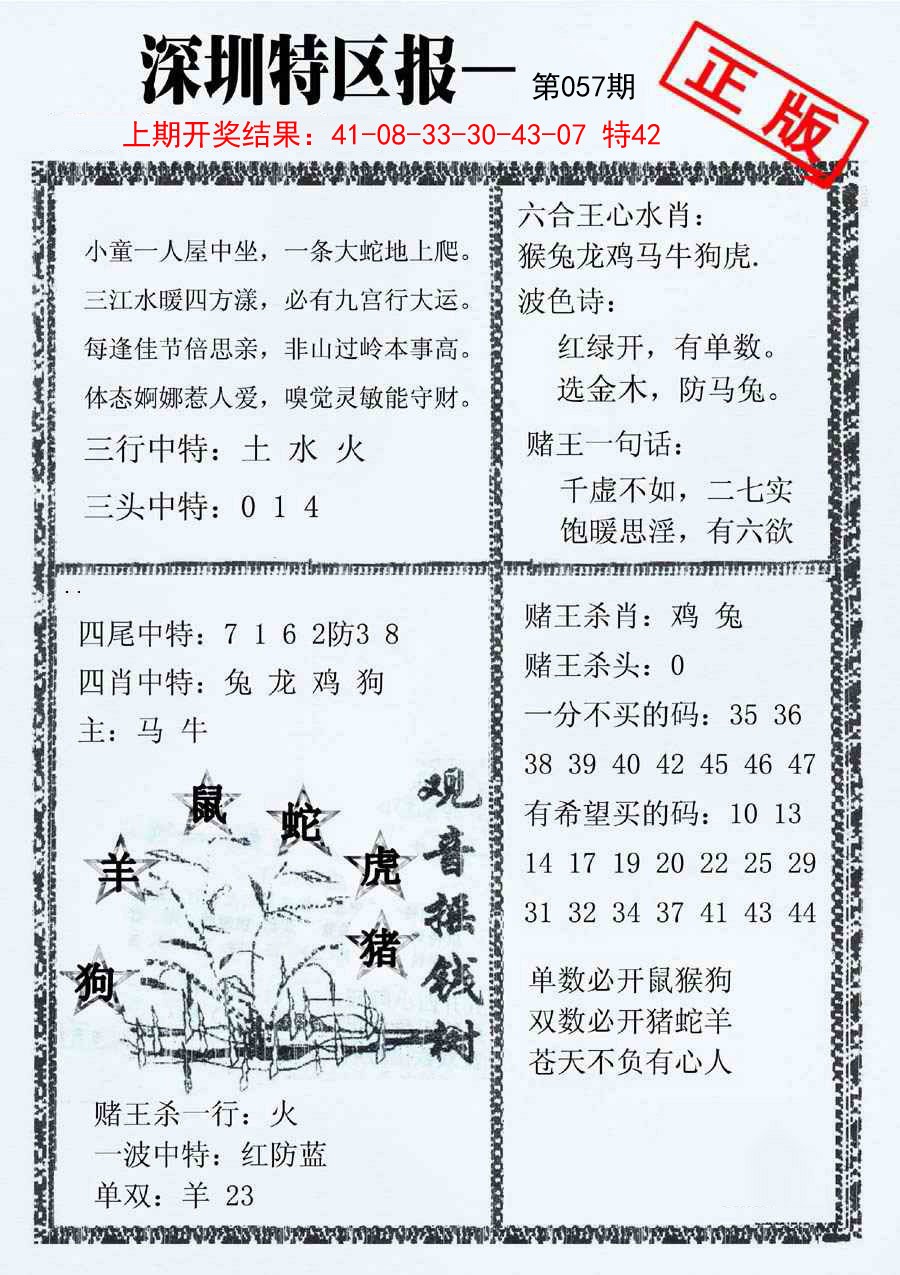 深圳特区报一 第057期
正版
上期开奖结果：41-08-33-30-43-07 特42
小童一人屋中坐，一条大蛇地上爬。
三江水暖四方漾，必有九宫行大运。
每逢佳节倍思亲，非山过岭本事高。
体态婀娜惹人爱，嗅觉灵敏能守财。
三行中特：土 水 火
三头中特：0 1 4
六合王心水肖：
猴兔龙鸡马牛狗虎.
波色诗：
红绿开，有单数。
选金木，防马兔。
赌王一句话：
千虚不如，二七实
饱暖思淫，有六欲
四尾中特：7 1 6 2防3 8
四肖中特：兔 龙 鸡 狗
主：马 牛
鼠
蛇
羊
虎
猪
狗
观音摇钱树
赌王杀一行：火
一波中特：红防蓝
单双：羊 23
赌王杀肖：鸡 兔
赌王杀头：0
一分不买的码：35 36
38 39 40 42 45 46 47
有希望买的码：10 13
14 17 19 20 22 25 29
31 32 34 37 41 43 44
单数必开鼠猴狗
双数必开猪蛇羊
苍天不负有心人